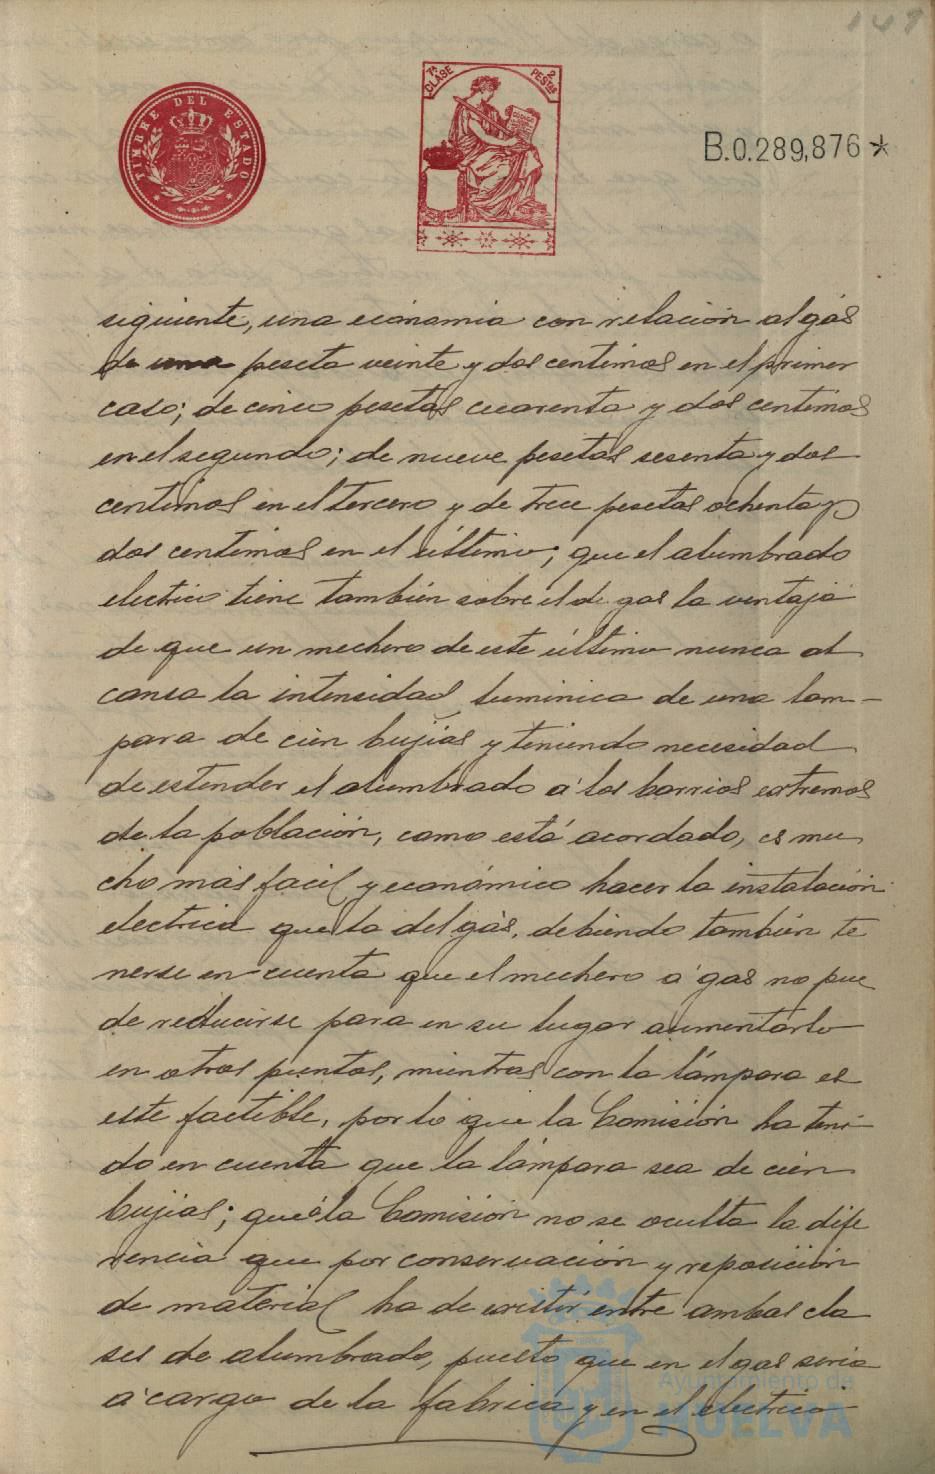 149
TIMBRE DEL ESTADO
7ª CLASE 2 PESTAS
B.0.289,876*
siguiente, una ecónomia con relación al gás
de una peseta veinte y dos centimos en el primer
caso; de cinco pesetas cuarenta y dos centimos
en el segundo; de nueve pesetas sesenta y dos
centimos en el tercero y de trece pesetas ochenta y
dos centimos en el último; que el alumbrado
electrico tiene también sobre el de gas la ventaja
de que un mechero de este último nunca al
canza la intensidad luminica de una lam-
para de cien bujias y teniendo necesidad
de estender el alumbrado á los barrios extremos
de la población, como está acordado, es mu
cho más facil y económico hacer la instalación
electrica que la del gás, debiendo también te
nerse en cuenta que el mechero á gas no pue
de reducirse para en su lugar aumentarlo
en otros puntos, mientras con la lámpara es
este factible, por lo que la Comisión ha teni-
do en cuenta que la lámpara sea de cien
bujias; que la Comisión no se oculta la dife
rencia que por conservación y reposición
de material ha de existir entre ambas cla
ses de alumbrado, puesto que en el gas seria
á cargo de la fabrica y en el electrico
Ayuntamiento de
HUELVA